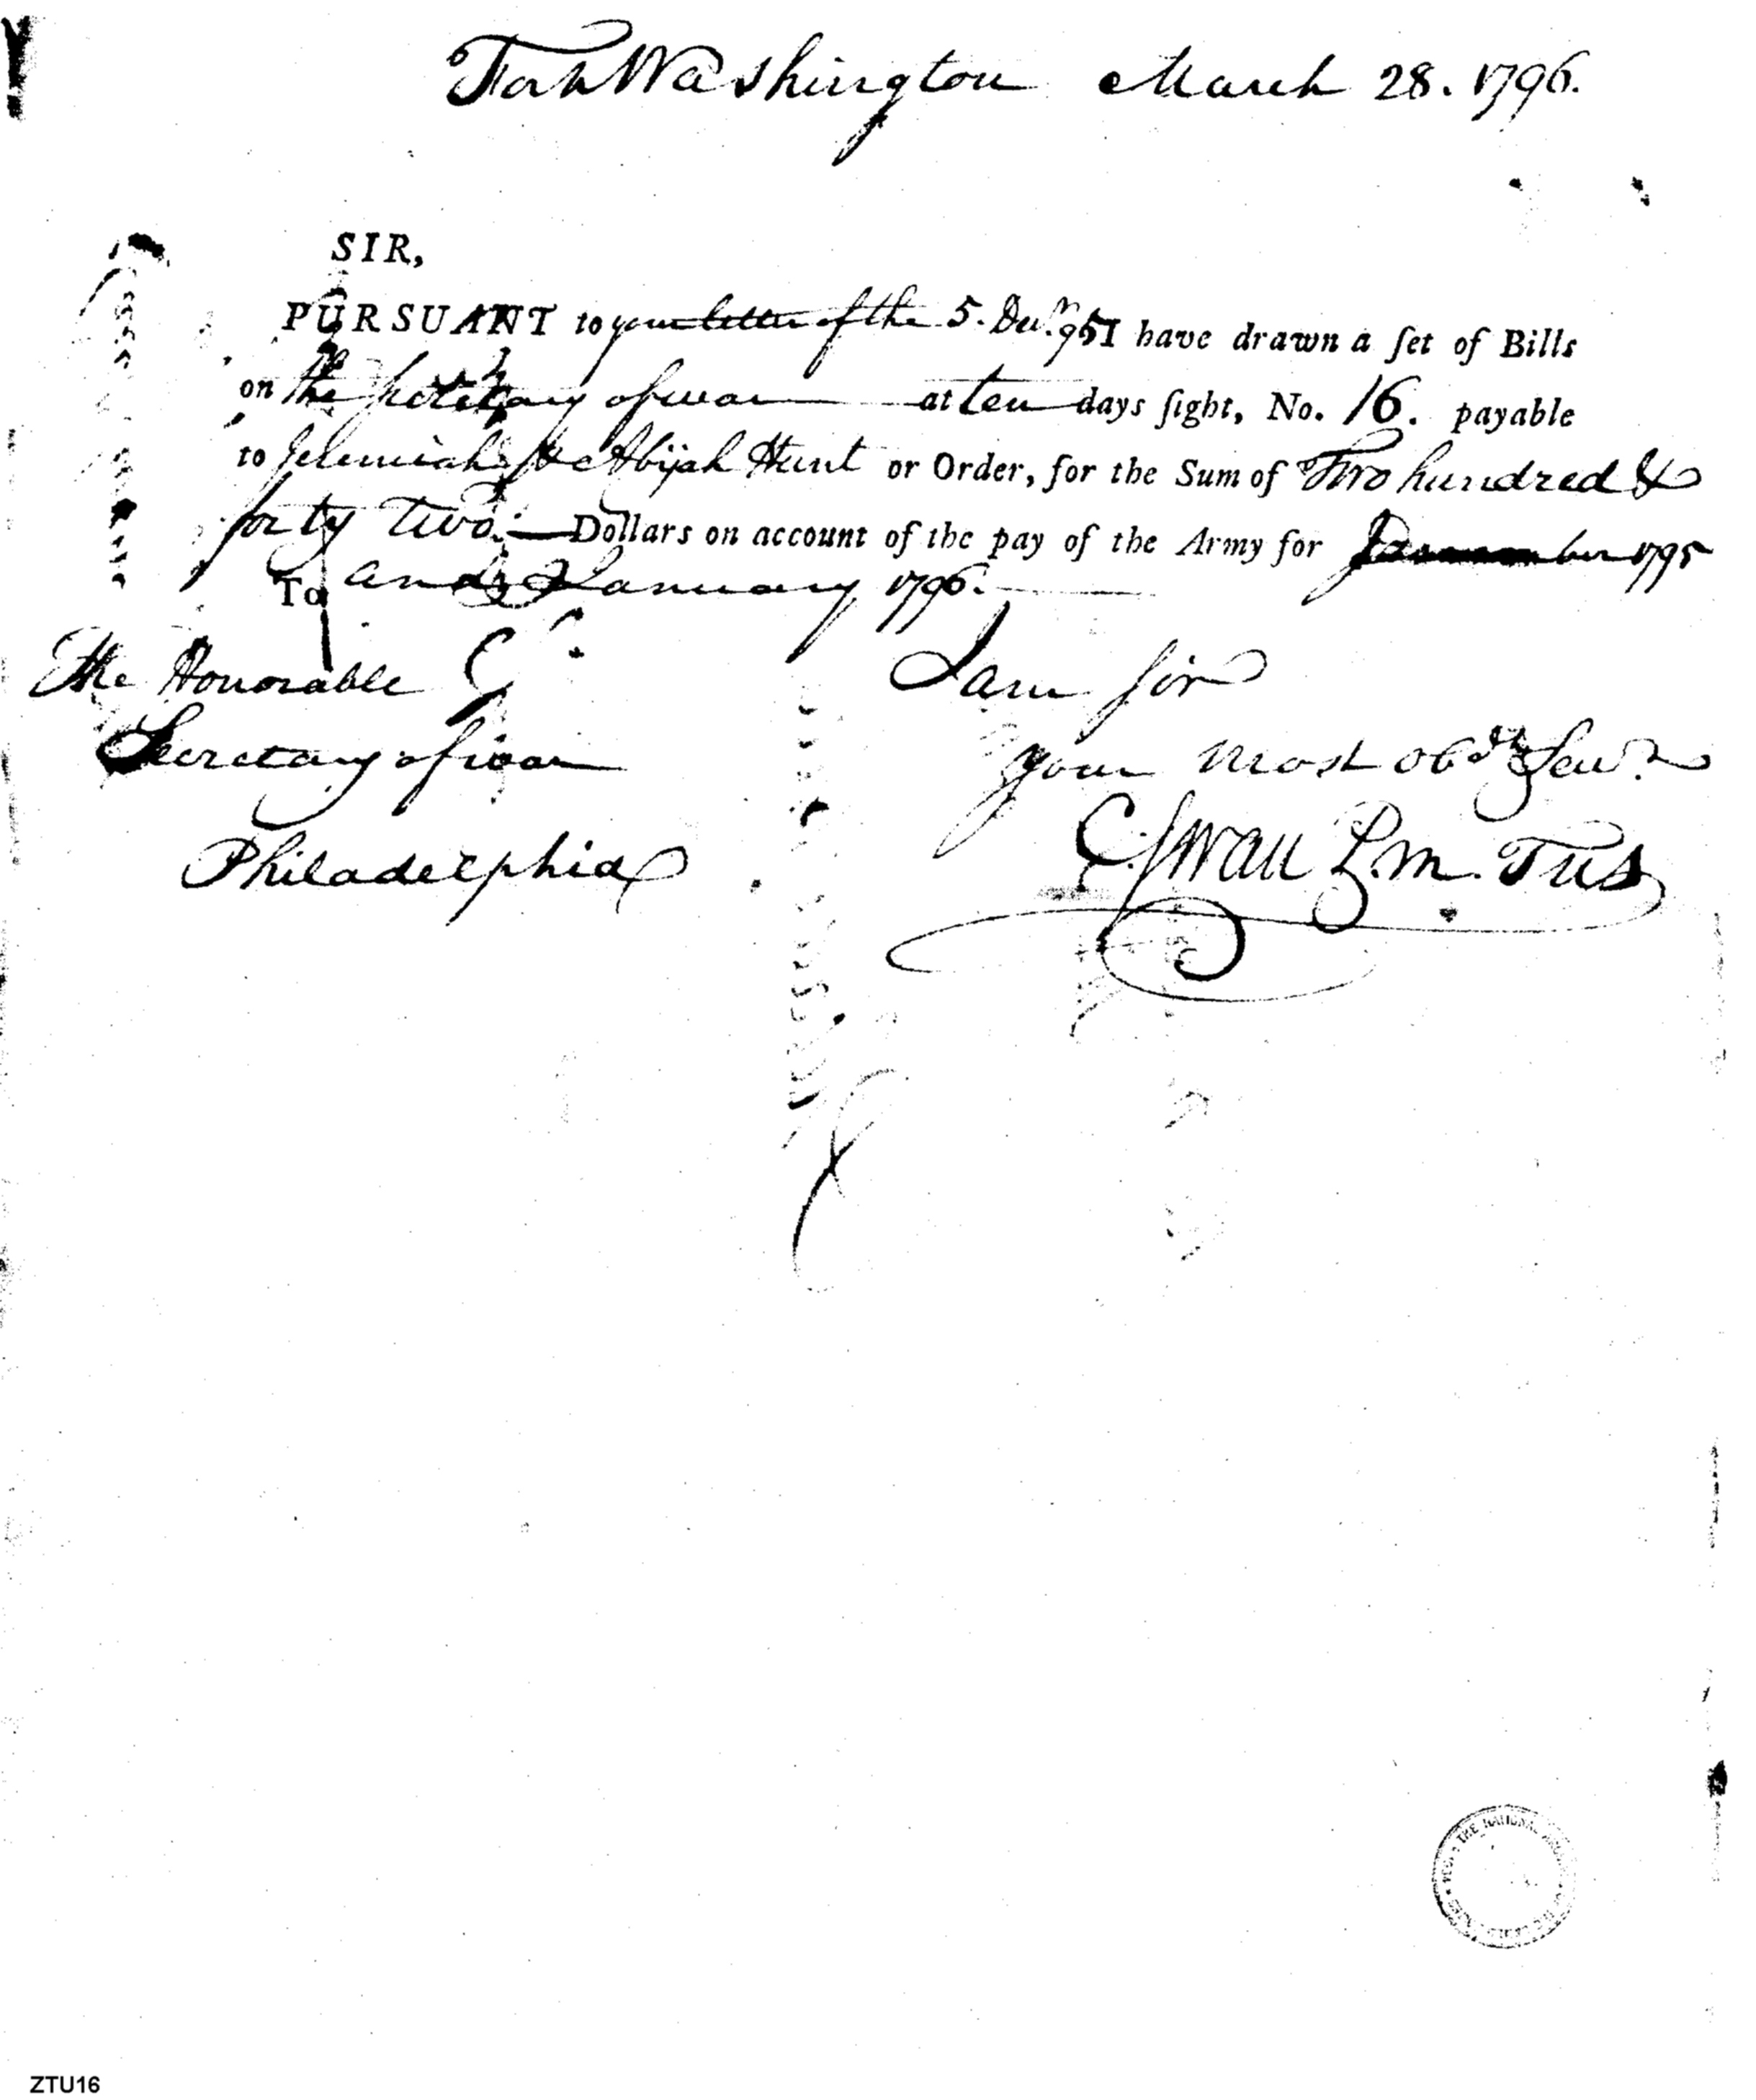 Fort Washington March 28. 1796.
SIR,
PURSUANT to your letter of the 5. Decr. 95 I have drawn a ſet of Bills
on the Secretary of war at ten days ſight, No. 16. payable
to Jeremiah & Abijah Hunt or Order, for the Sum of Two hundred &
forty two. Dollars on account of the pay of the Army for 1795
To and January 1796.
The Honorable
I am Sir
Secretary of war
your most obdt Servt
Philadelphia
C. Swan P. M. TUS
THE NATIONAL
ZTU16